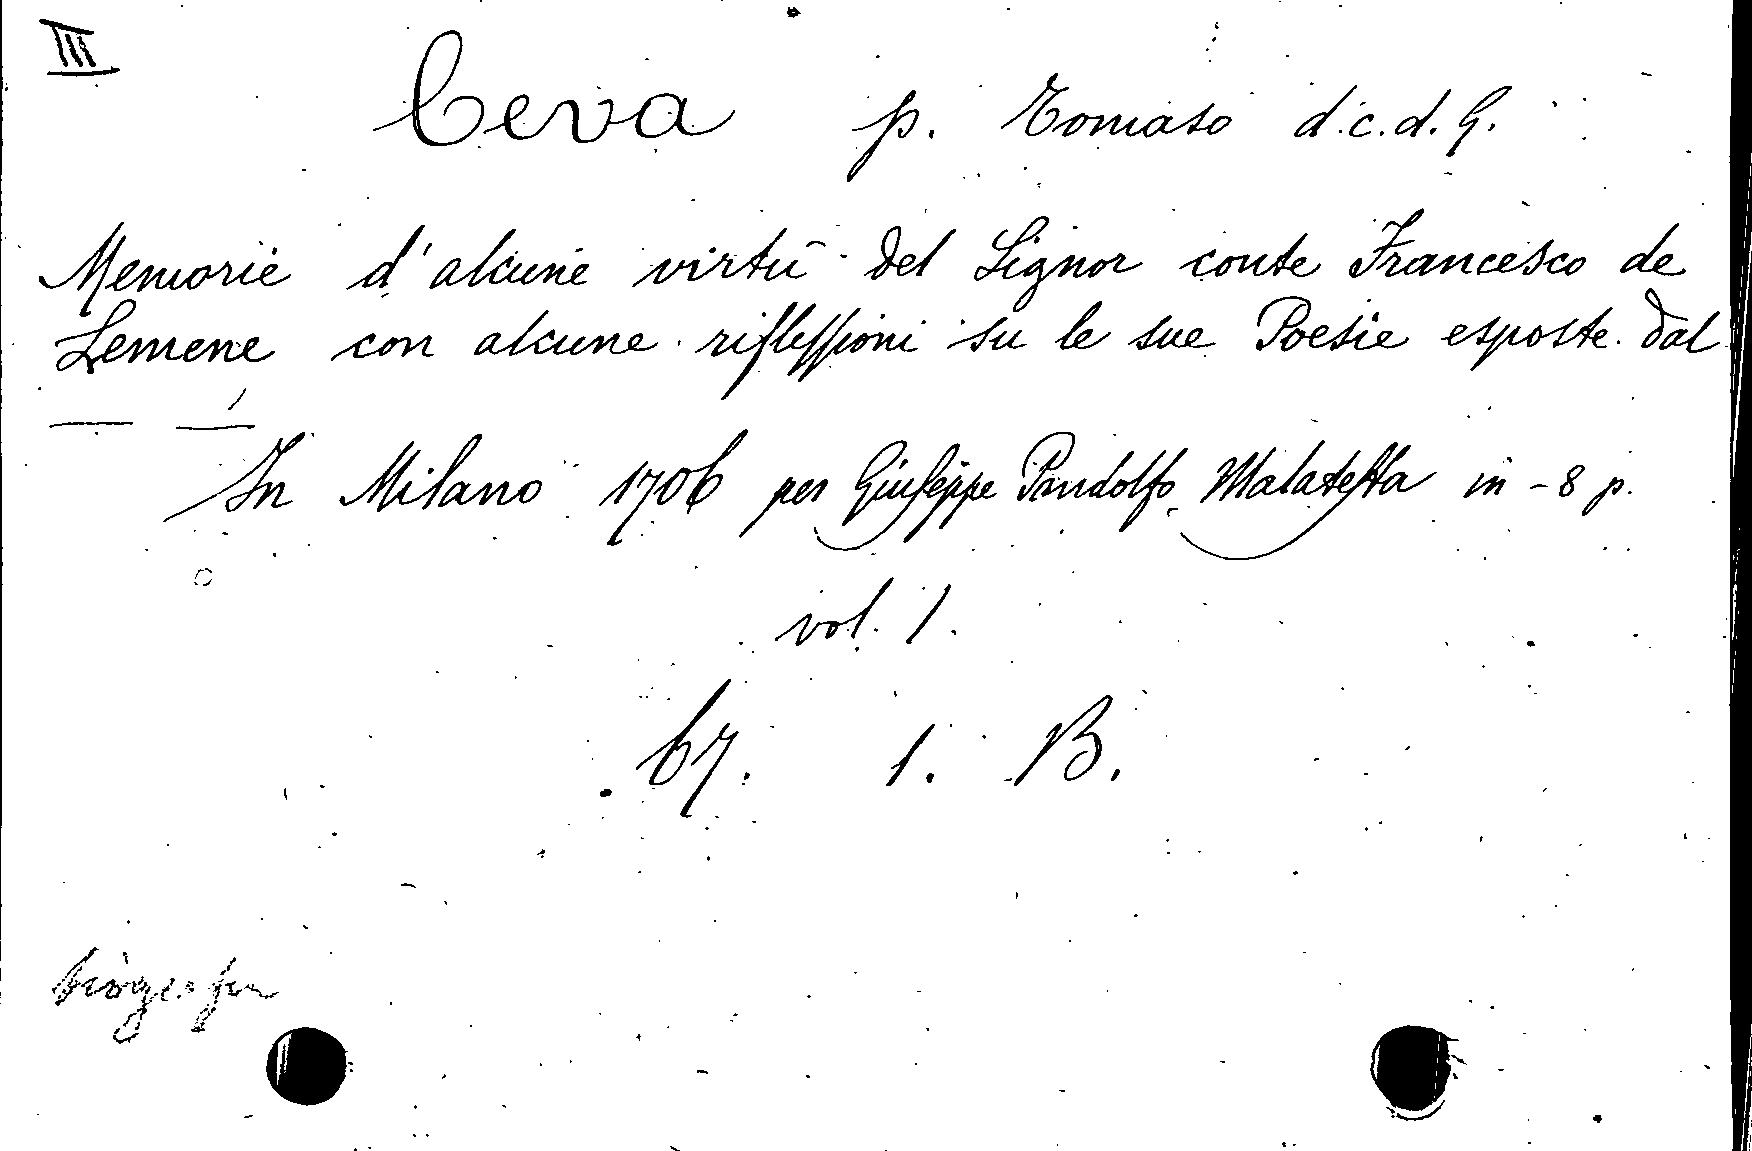 III
Ceva p. Tomaso d.c.d.G.
Memorie d'alcune virtù del Signor conte Francesco de
Lemene con alcune riflessioni su le sue Poesie esposte dal
— —
In Milano 1706 per Giuseppe Pandolfo Malatesta in-8 p.
vol. 1.
67. 1. B.